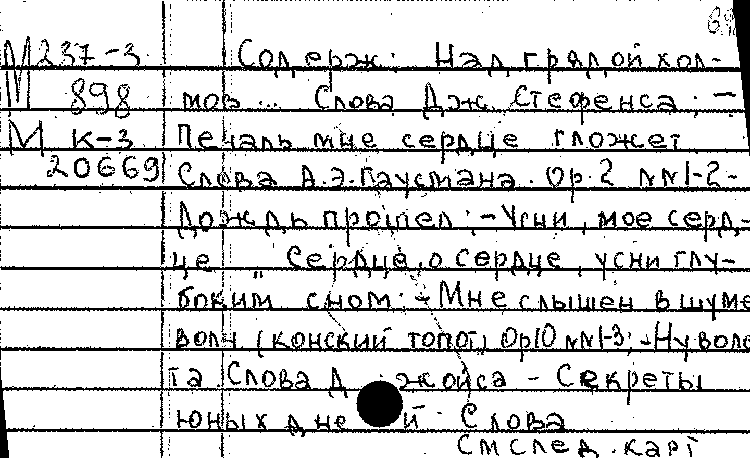 М 237-3 Содерж: Над грядой хол-
898 мов... Слова Дж. Стефенса; -
М К-3 Печаль мне сердце гложет.
20669 Слова А.Э.Гаусмана. Ор.2 NN1-2-
Дождь прошел; - Усни, мое серд-
це „ Сердце, о сердце, усни глу-
боким сном; - Мне слышен в шуме
волн (конский топот) Ор10 NN1-3; -Ну воло
та Слова Д жойса - Секреты
юных дне й Слова
См след. карт